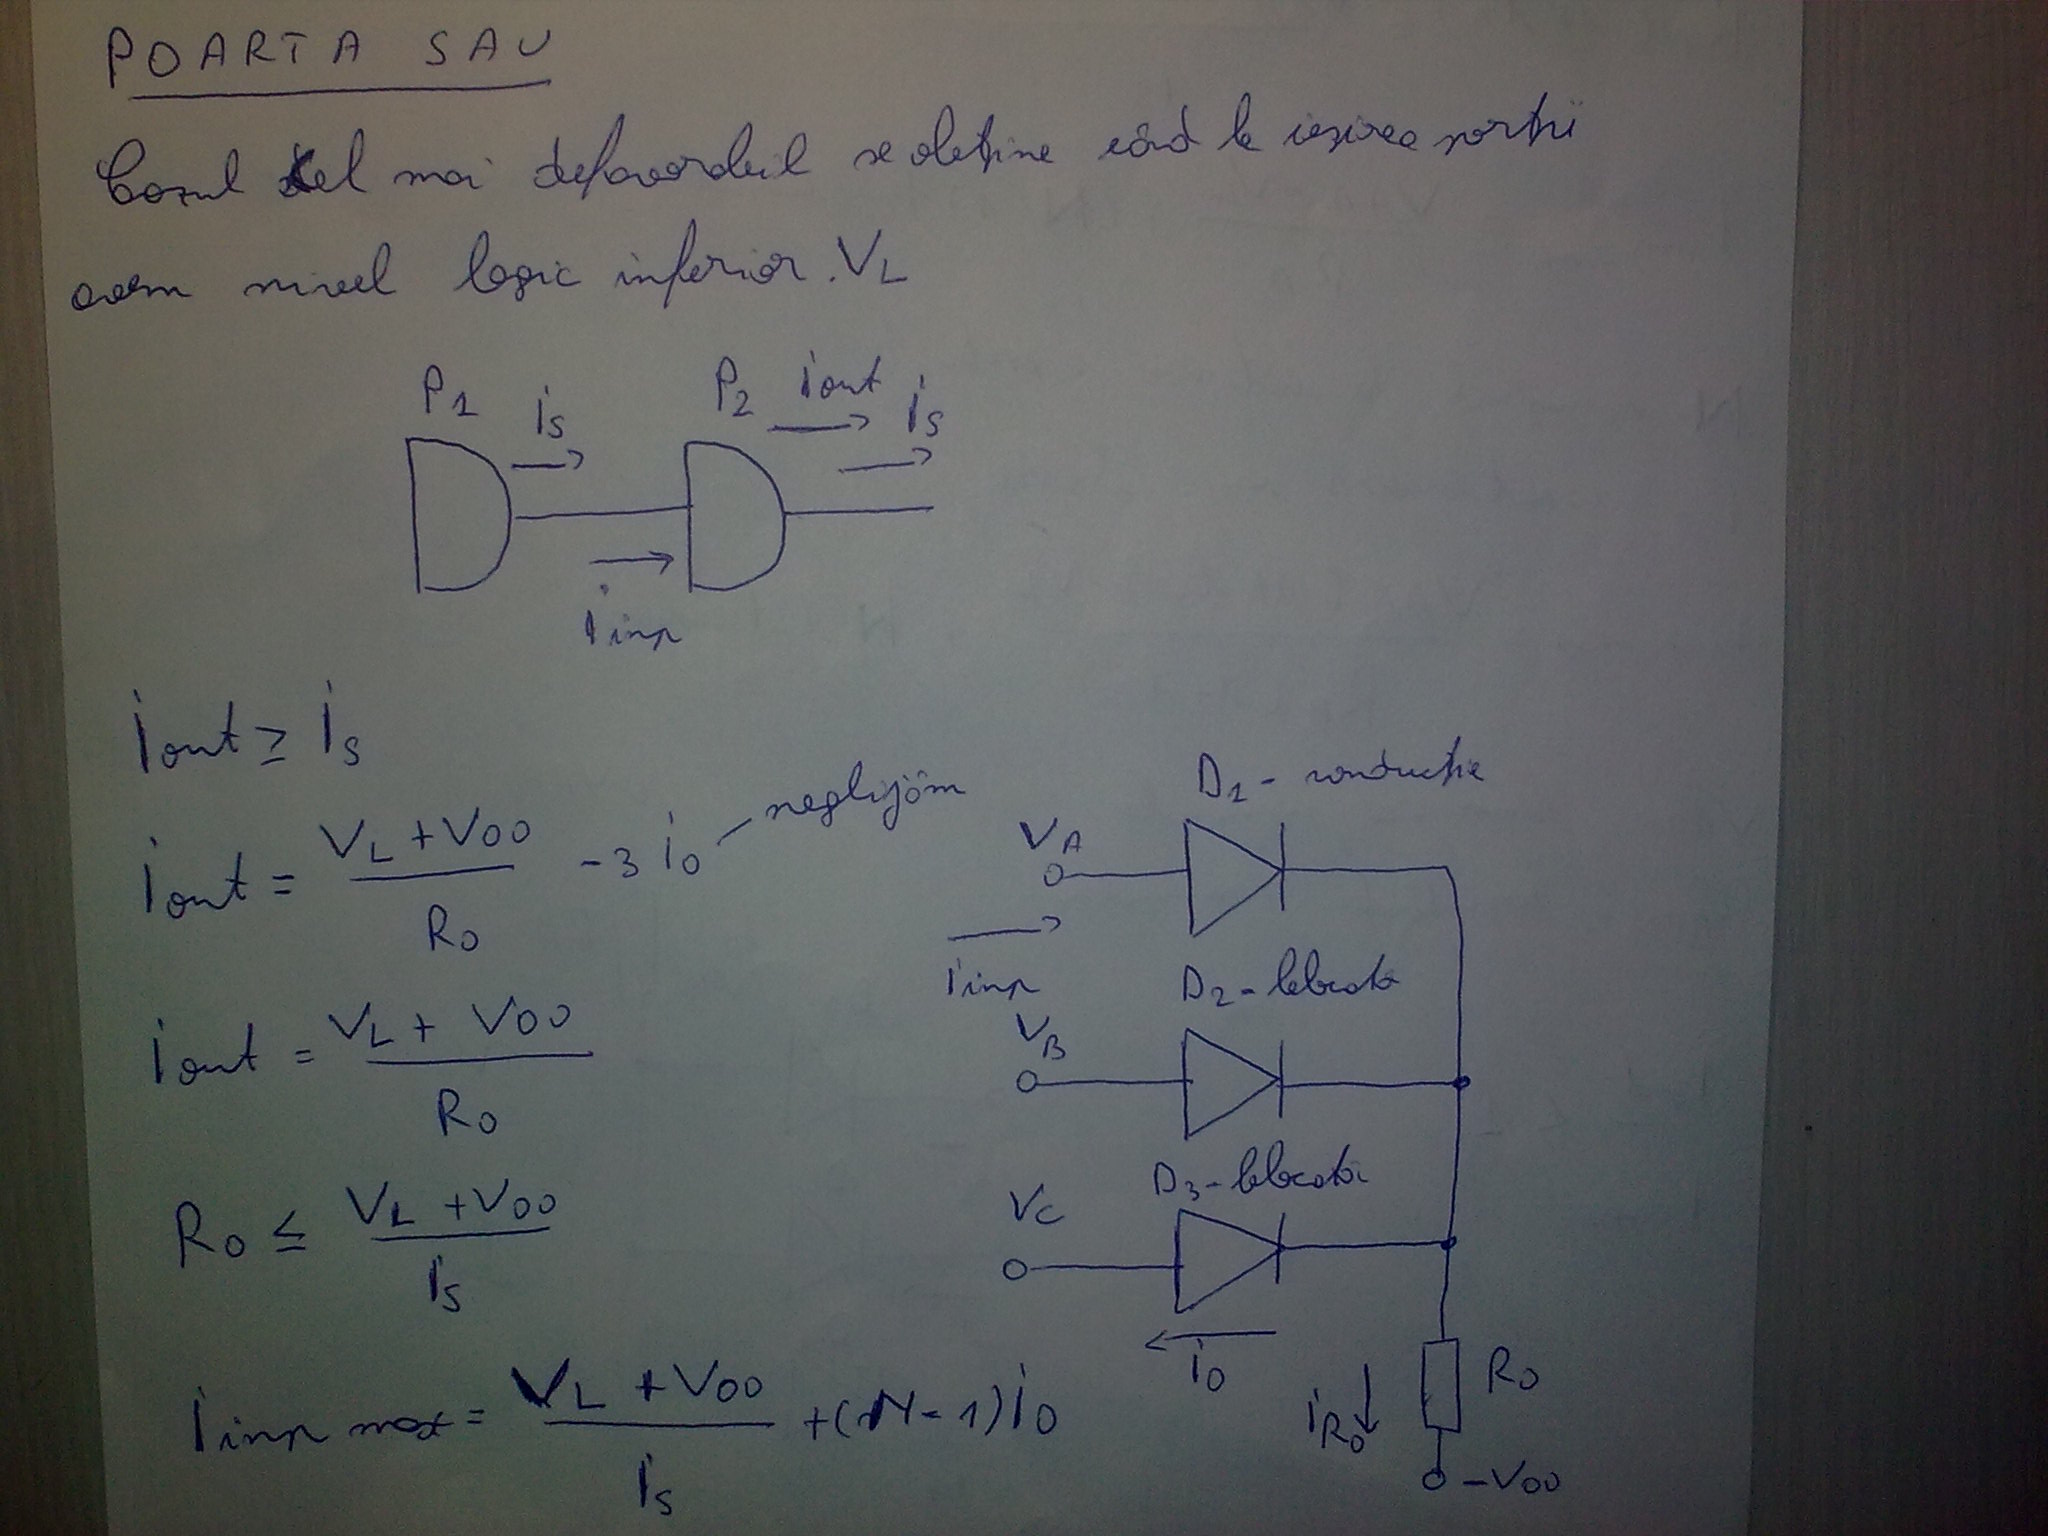 POARTA SAU
Cazul cel mai defavorabil se obține când la ieșirea porții
avem nivel logic inferior. VL
P1 is P2 iout is
iinp
iout ≥ is
iout = (VL + V00) / R0 - 3 i0 neglijăm
iout = (VL + V00) / R0
R0 ≤ (VL + V00) / is
iinp max = (VL + V00) / is + (N - 1) i0
D1 - conducție
VA
iinp
D2 - blocată
VB
D3 - blocată
VC
i0
iR0 R0
-V00